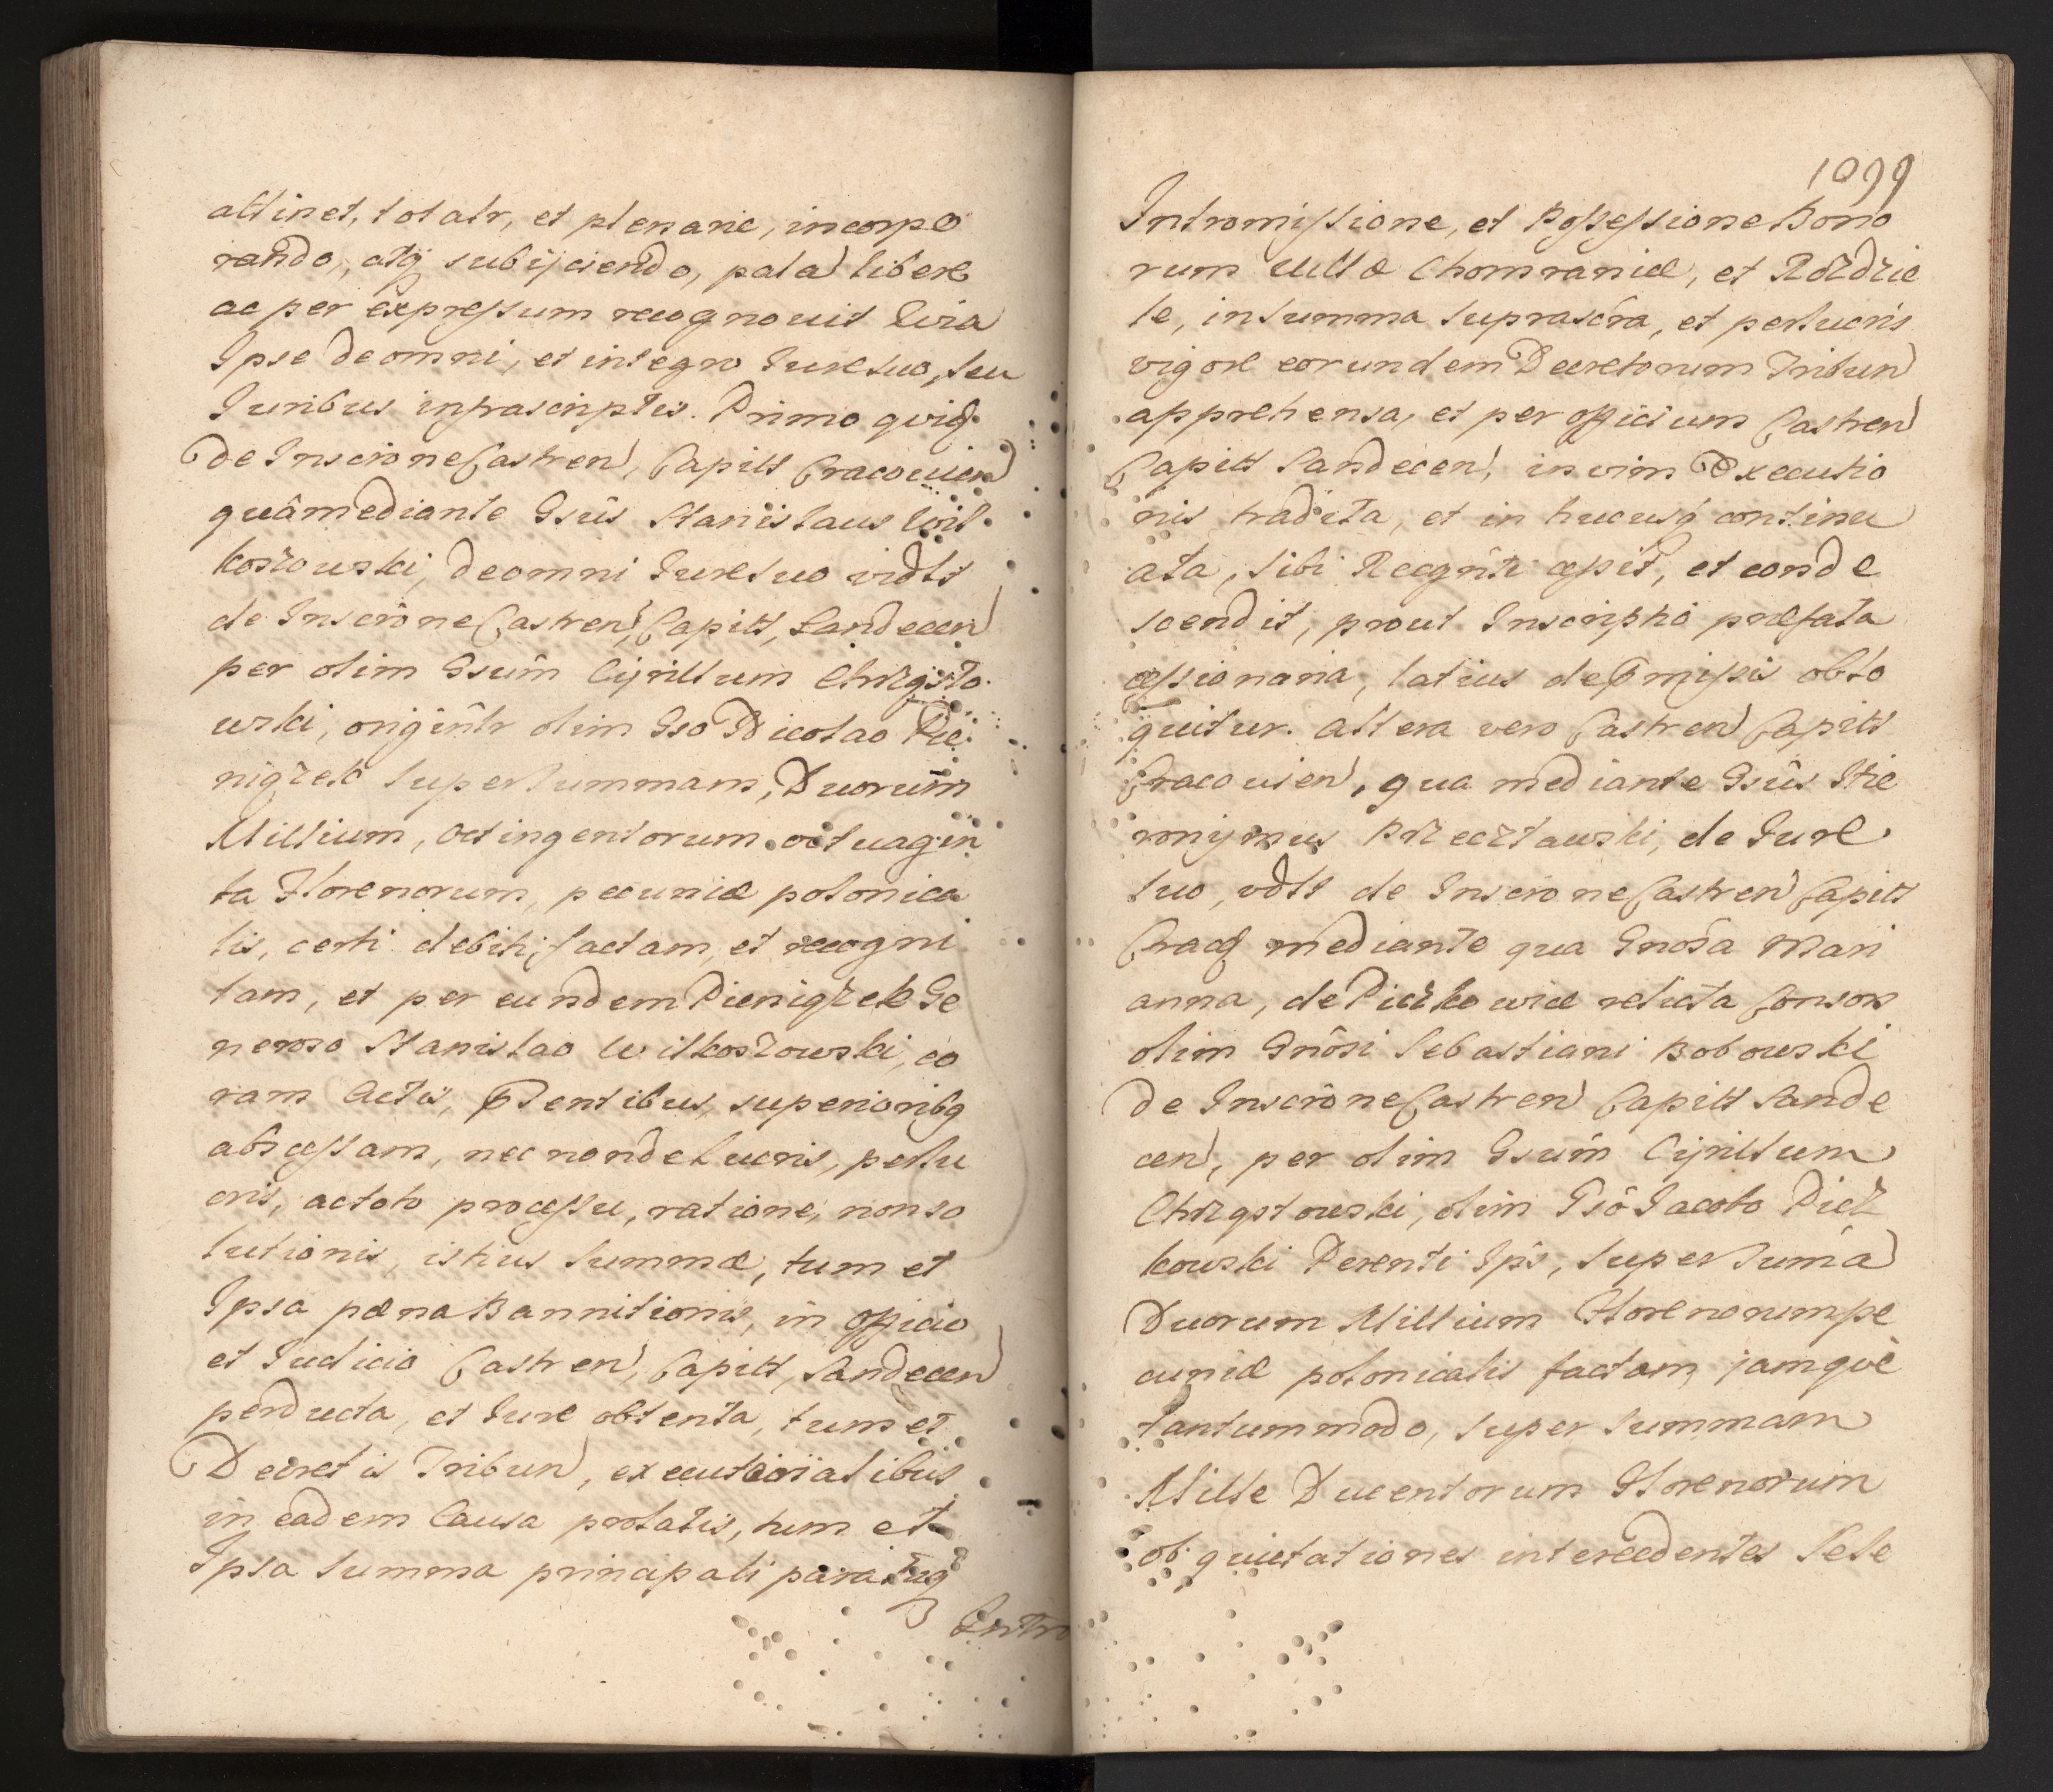 attinet, totalr, et plenarie, incorpo
rando, atq subijciendo, pala libere
ac per expressum recognouit circa
Ipse de omni, et integro Jure suo, seu
Juribus infrascriptis. Primo quid
de Inscrione Castren, Capitt Cracouien
quâ mediante Gsûs Stanislaus Wil
koszowski, de omni Jure suo vidtt
de Inscrône Castren, Capitt, Sandecen
per olim Gsum Cijrillum Chrząsto
wski, originlr olim Gso Nicolao Pie
niążek super summam, Duorum
Millium, octingentorum octuagin
ta Florenorum, pecuniæ polonica
lis, certi debiti, factam, et recogni
tam, et per eundem Pieniążek Ge
neroso Stanislao Wilkoszowski, co
ram Actis, pntibus, superioribq
abscessam, nec non de lucris, perlu
cris, ac toto processu, ratione, nonso
lutionis, istius summæ, tum et
Ipsa pæna Bannitionis, in officio
et Judicio Castren, Capitt, Sandecen
perducta, et Jure obtenta, tum et
Decretis Tribun, executorialibus
in eadem Causa prolatis, tum et
Ipsa summa principali pariterq
Intro
1099
Intromissione, et Possessione Bono
rum villæ Chomraniæ, et Rozdzie
le, in summa suprascra, et perlucris
vigore eorundem Decretorum Tribun
apprehensa, et per officium Castren
Capitt Sandecen, in vim Executio
nis tradita, et in hucusq continu
ata, sibi Recgnti cepit, et conde
scendit, prout Inscriptio præfata
cessionaria, latius de pmissis oblo
quitur. Altera vero Castren Capitt
Cracouien, qua mediante Gsûs Hie
ronijmus Przeczławski, de Jure
suo, vdtt de Inscrone Castren Capitt
Crac mediante qua Gnosa Mari
anna, de Pieczkowicæ relicta Consors
olim Gnôsi Sebastiani Bobowski
de Inscrône Castren Capitt Sande
cen, per olim Gsum Cijrillum
Chrząstowski, olim Gsô Jacobo Piecz
kowski Perenti Ips, super suma
Duorum Millium Florenorum pe
cuniæ polonicalis factam, jamquè
tantummodo, super summam
Mille Ducentorum Florenorum
ob quietationes intercedentes sese